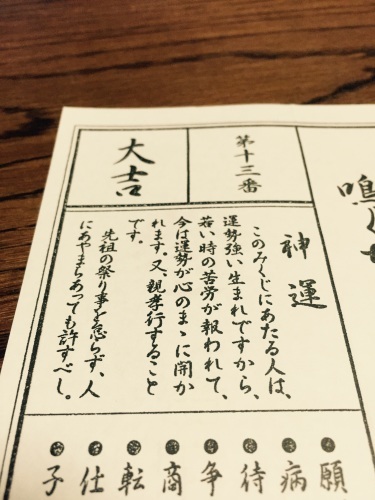 第十三番
大吉
神運
このみくじにあたる人は、
運勢強い生まれですから、
若い時の苦労が報われて、
今は運勢が心のまゝに開か
れます。又、親孝行すること
です。
先祖の祭り事を怠らず、人
にあやまちあっても許すべし。
願
病
待
争
商
転
仕
子